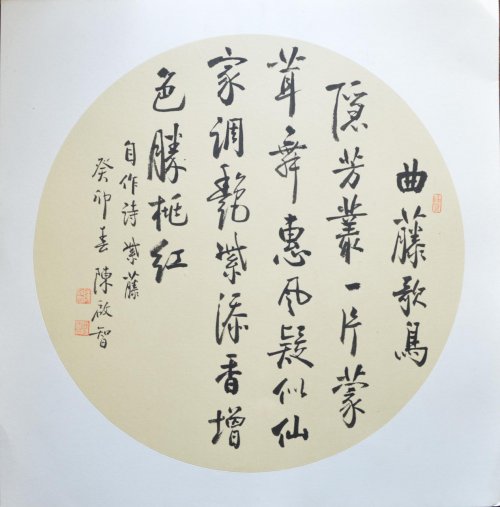 曲藤歌鳥
隱芳叢一片蒙
茸舞惠风疑似仙
家調靛紫添香增
色勝桃红
自作詩紫藤
癸卯春陳啟智